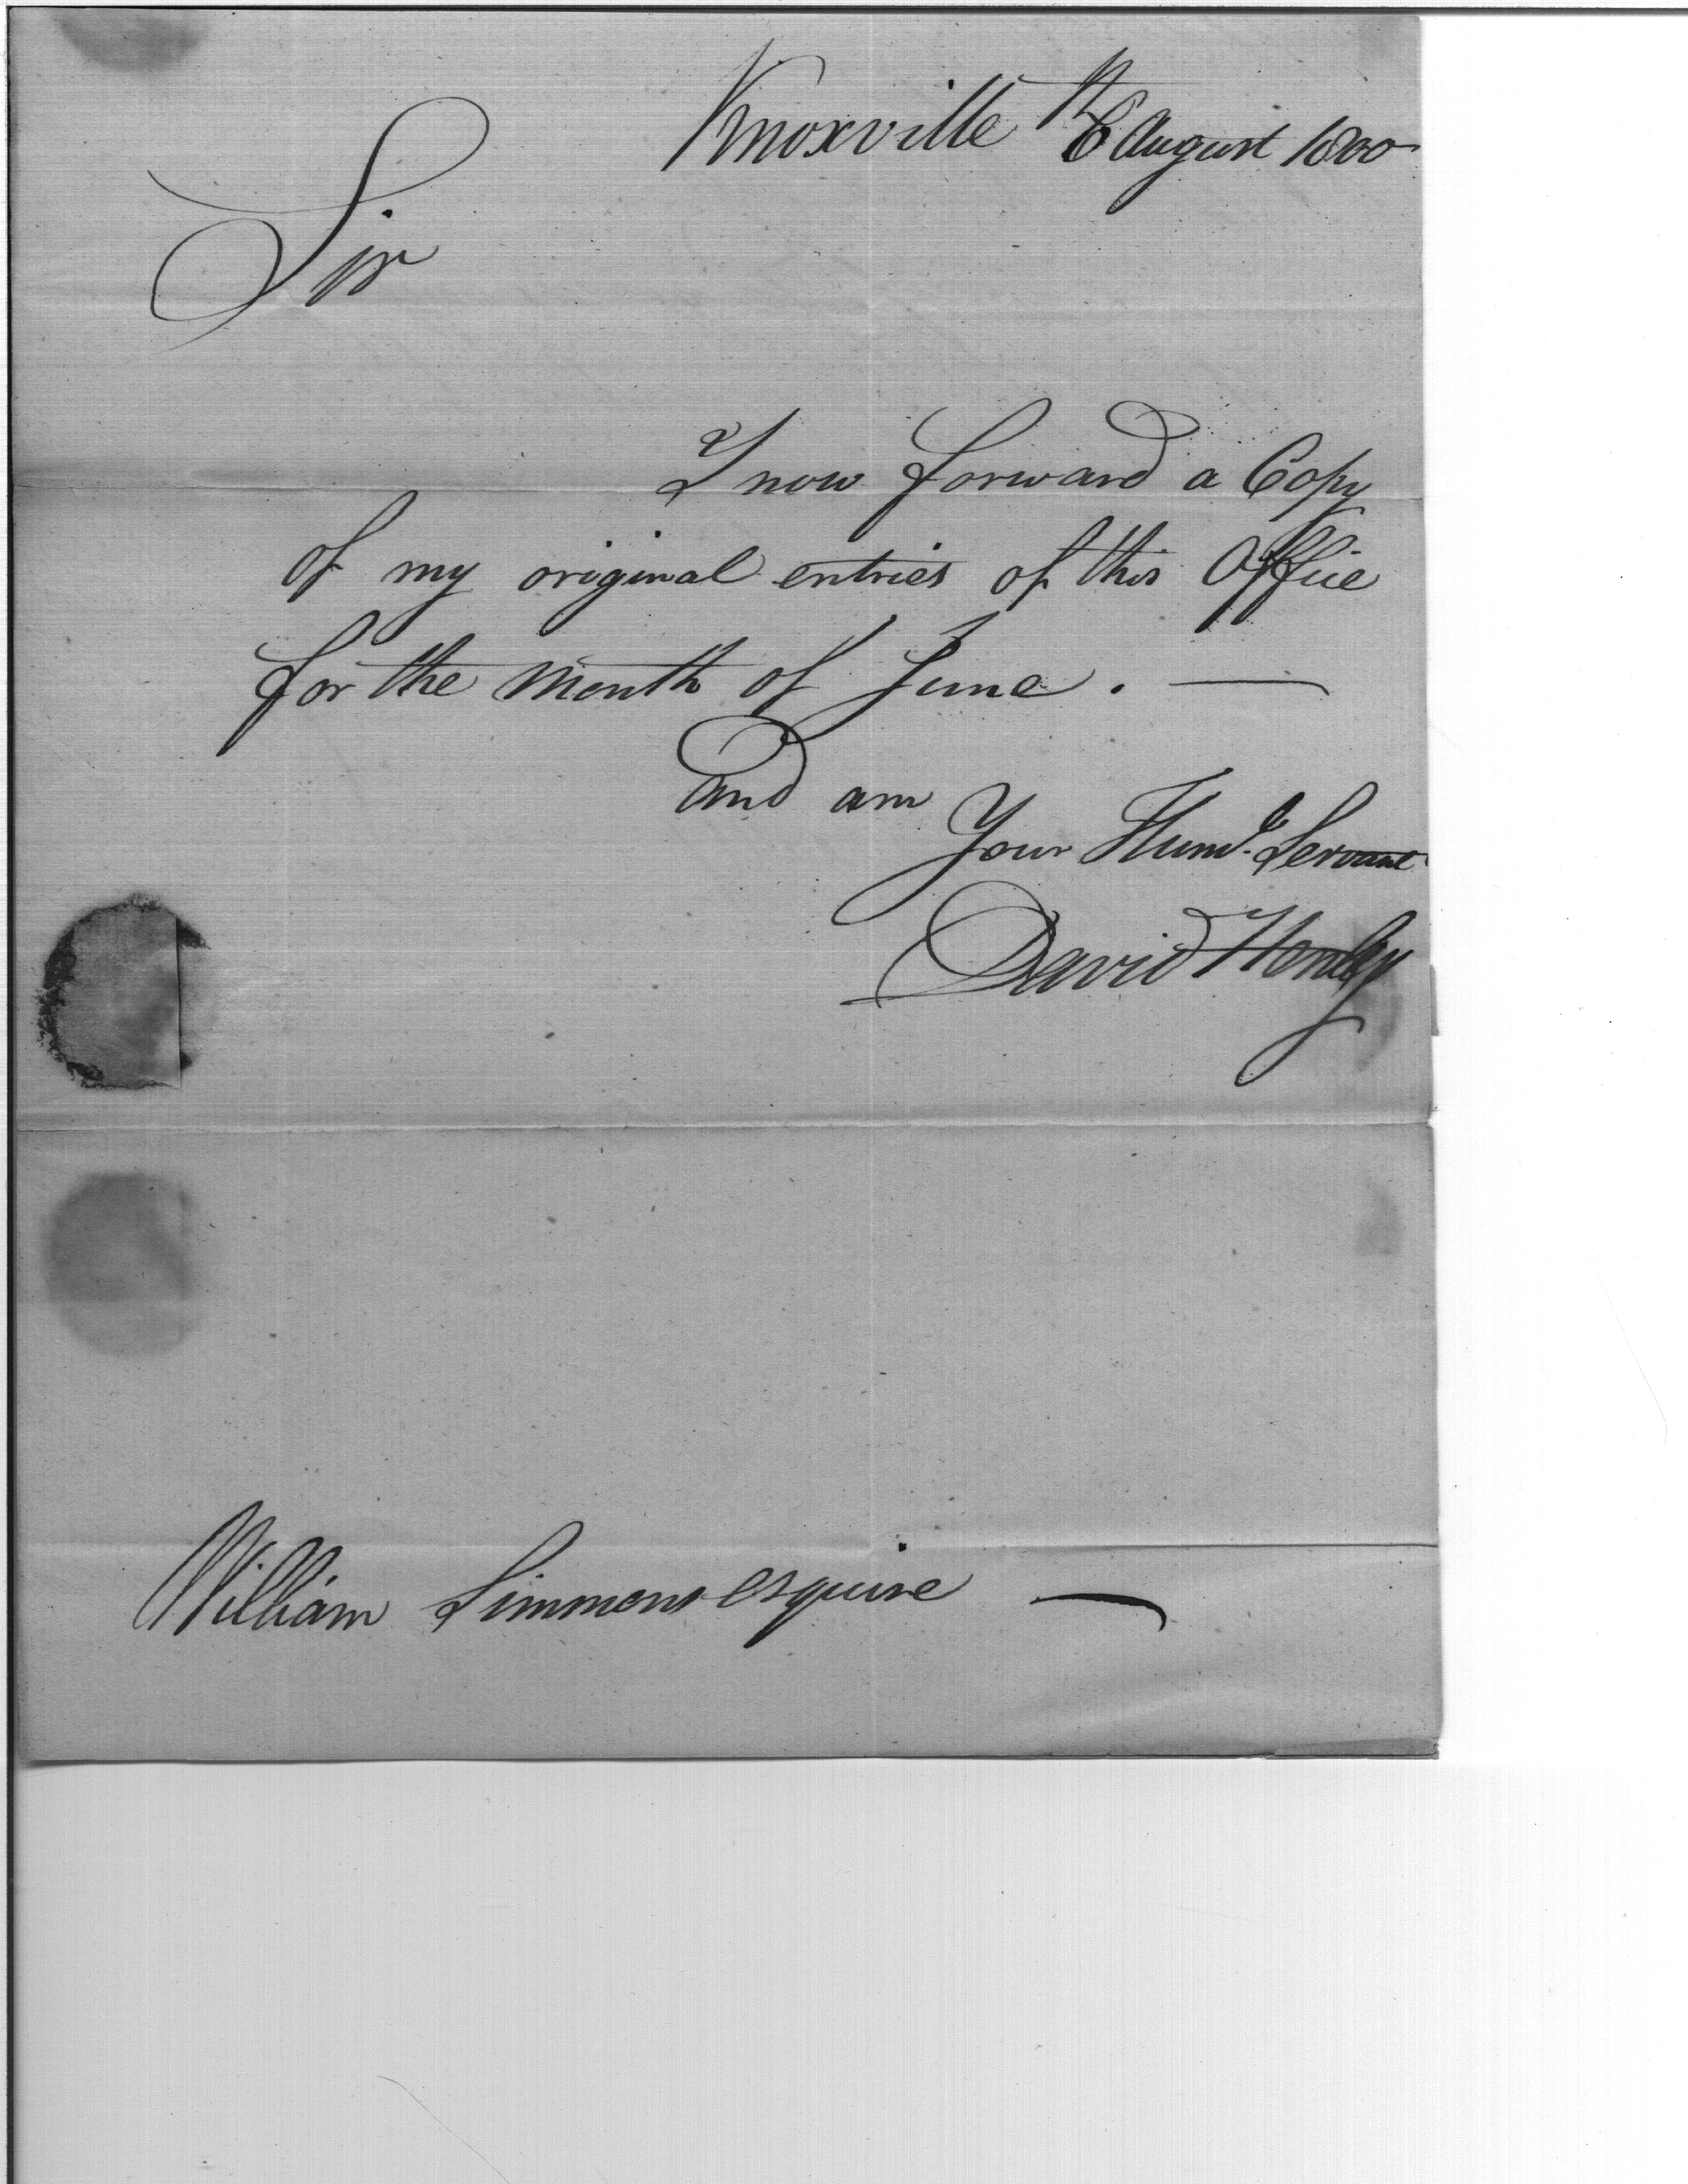 Knoxville 6th August 1800
Sir
I now forward a Copy
of my original entries of this Office
for the month of June. —
and am
Your Humbe. Servant
David Henley
William Simmons esquire —